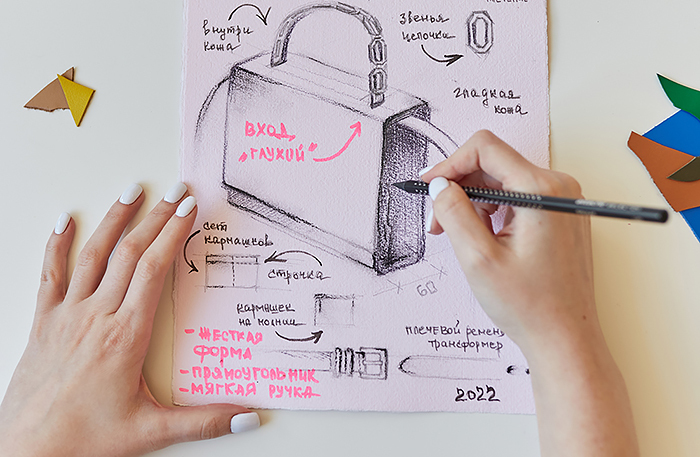 внутри
кожа
звенья
цепочки
гладкая
кожа
вход
„глухой"
сет
кармашков
строчка
60
кармашек
на молнии
- жесткая
форма
- прямоугольник
- мягкая ручка
плечевой ремень
трансформер
2022